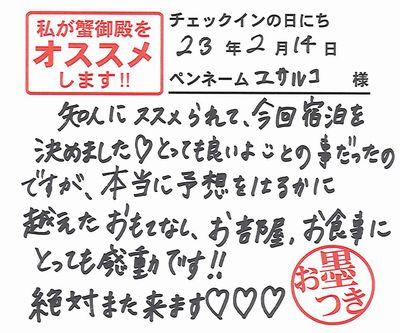 私が蟹御殿を
オススメ
します!!
チェックインの日にち
23年2月14日
ペンネーム ユサルコ 様
知人にススメられて、今回宿泊を
決めました♡とっても良いよことの事だったの
ですが、本当に予想をはるかに
越えたおもてなし、お部屋、お食事に
とっても感動です!!
絶対また来ます♡♡♡
お墨つき